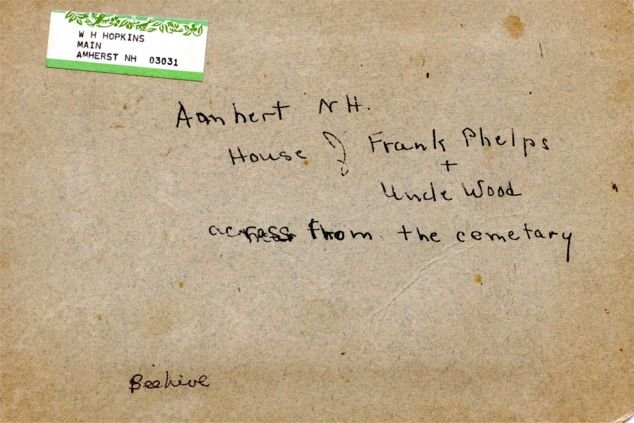 W H HOPKINS
MAIN
AMHERST NH 03031
Amhert NH.
House of Frank Phelps
+
Uncle Wood
across from the cemetary
Beehive